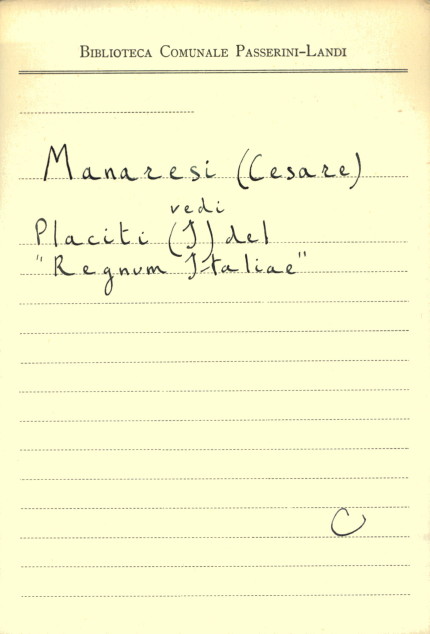 Biblioteca Comunale Passerini-Landi
Manaresi (Cesare)
vedi
Placiti (I) del
"Regnum Italiae"
C